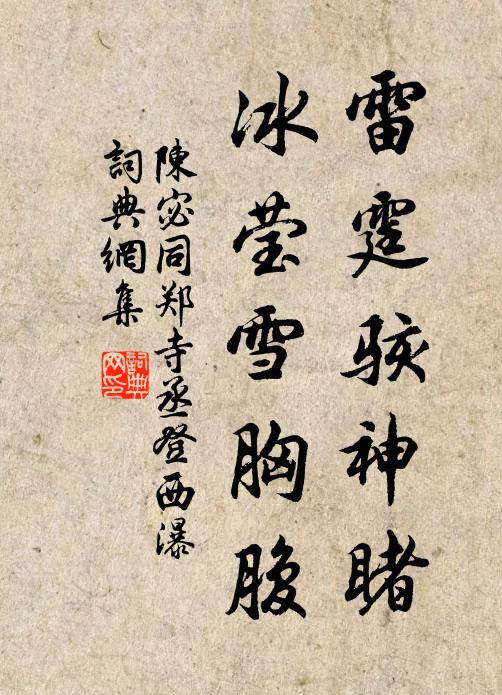 雷霆骇神睹
冰莹雪胸腹
陳宓同郑寺丞登西瀑
詞典網集
詞典
网印